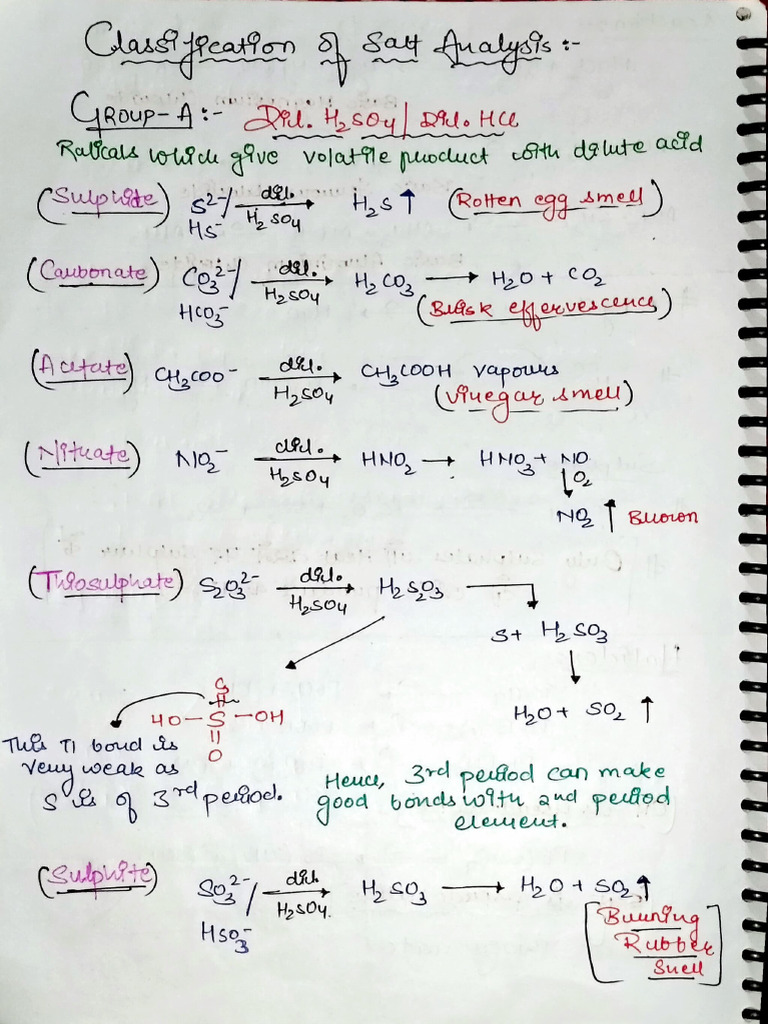 Classification of Salt Analysis:-
GROUP-A:- Dil. H₂SO₄/ Dil. HCl
Radicals which give volatile product with dilute acid
(Sulphide) S²⁻/ HS⁻ dil. H₂SO₄ → H₂S ↑ (Rotten egg smell)
(Carbonate) CO₃²⁻/ HCO₃⁻ dil. H₂SO₄ → H₂CO₃ → H₂O + CO₂
(Brisk effervescence)
(Acetate) CH₃COO⁻ dil. H₂SO₄ → CH₃COOH vapours
(vinegar smell)
(Nitrate) NO₂⁻ dil. H₂SO₄ → HNO₂ → HNO₃ + NO
↓ O₂
NO₂ ↑ Brown
(Thiosulphate) S₂O₃²⁻ dil. H₂SO₄ → H₂S₂O₃
S + H₂SO₃
↓
H₂O + SO₂ ↑
S
HO – S – OH
O
This π bond is
very weak as
S is of 3rd period.
Hence, 3rd period can make
good bonds with 2nd period
element.
(Sulphite) SO₃²⁻/ HSO₃⁻ dil. H₂SO₄. → H₂SO₃ → H₂O + SO₂ ↑
[Burning
Rubber
Smell]